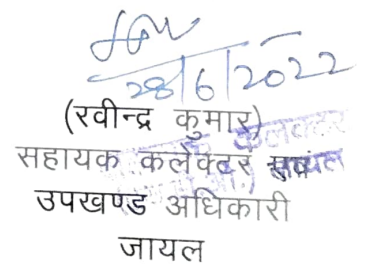 28/6/2022
(रवीन्द्र कुमार)
सहायक कलेक्टर एवं
उपखण्ड अधिकारी
जायल